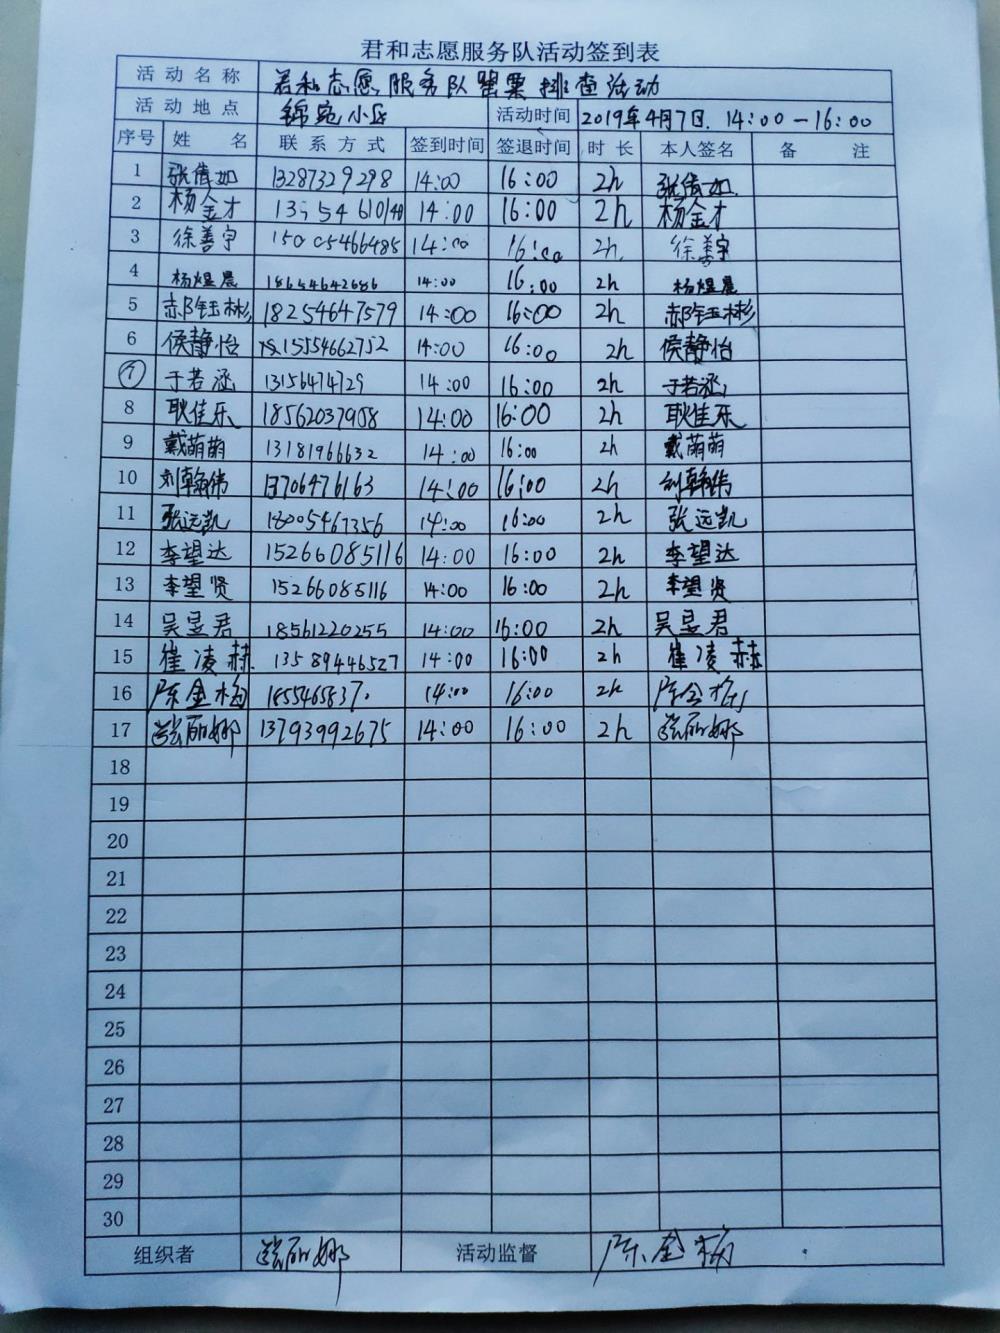 君和志愿服务队活动签到表
活动名称 君和志愿服务队罂粟排查活动
活动地点 锦苑小区 活动时间 2019年4月7日. 14:00-16:00
序号 姓名 联系方式 签到时间 签退时间 时长 本人签名 备注
1 张倩如 13287329298 14:00 16:00 2h 张倩如.
2 杨金才 14:00 16:00 2h 杨金才
3 徐善宇 15005466485 14:00 16:00 2h. 徐善宇
4 杨煜晨 18654642686 14:00 16:00 2h 杨煜晨
5 郝钰彬 18254647579 14:00 16:00 2h 郝钰彬
6 侯静怡 15554662752 14:00 16:00 2h 侯静怡
7 于若涵 13156474729 14:00 16:00 2h 于若涵
8 耿佳乐 18562037958 14:00 16:00 2h 耿佳乐
9 戴萌萌 13181966632 14:00 16:00 2h 戴萌萌
10 刘翰伟 13706476163 14:00 16:00 2h 刘翰伟
11 张远凯 18005467356 14:00 16:00 2h 张远凯
12 李望达 15266085116 14:00 16:00 2h 李望达
13 李望贤 15266085116 14:00 16:00 2h 李望贤
14 吴昱君 18561220255 14:00 16:00 2h 吴昱君
15 崔凌赫 13589446527 14:00 16:00 2h 崔凌赫
16 陈金梅 14:00 16:00 2h 陈金梅
17 丽娜 13793992675 14:00 16:00 2h 丽娜
18
19
20
21
22
23
24
25
26
27
28
29
30
组织者 丽娜 活动监督 陈金梅